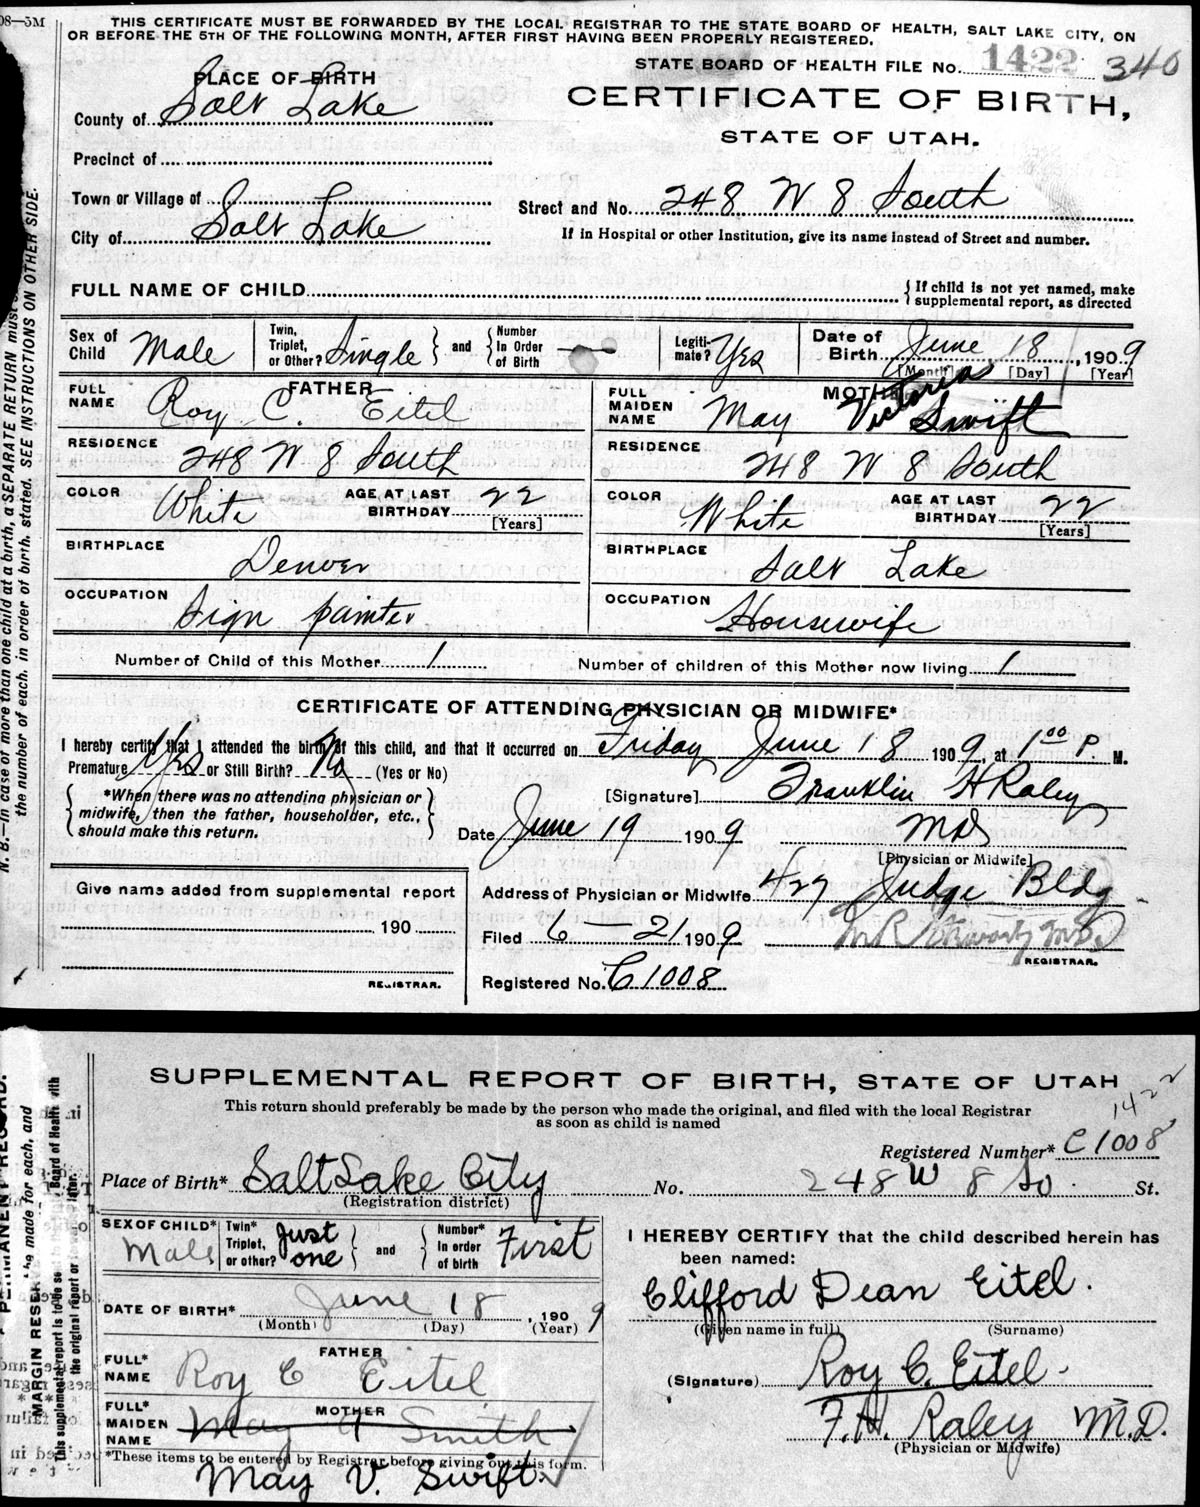 08—5M
THIS CERTIFICATE MUST BE FORWARDED BY THE LOCAL REGISTRAR TO THE STATE BOARD OF HEALTH, SALT LAKE CITY, ON
OR BEFORE THE 5TH OF THE FOLLOWING MONTH, AFTER FIRST HAVING BEEN PROPERLY REGISTERED.
STATE BOARD OF HEALTH FILE No. 1422 340
PLACE OF BIRTH
CERTIFICATE OF BIRTH,
STATE OF UTAH.
County of Salt Lake
Precinct of
Town or Village of
Street and No. 248 W 8 South
City of Salt Lake
If in Hospital or other Institution, give its name instead of Street and number.
FULL NAME OF CHILD
{If child is not yet named, make
supplemental report, as directed
Sex of Child Male
Twin, Triplet, or Other? Single } and { Number In Order of Birth —
Legiti- mate? Yes
Date of Birth June 18, 1909
[Month] [Day] [Year]
FATHER
FULL NAME Roy C. Eitel
MOTHER
FULL MAIDEN NAME May Victoria Swift
RESIDENCE 248 W 8 South
RESIDENCE 248 W 8 South
COLOR White AGE AT LAST BIRTHDAY 22 [Years]
COLOR White AGE AT LAST BIRTHDAY 22 [Years]
BIRTHPLACE Denver
BIRTHPLACE Salt Lake
OCCUPATION Sign painter
OCCUPATION Housewife
Number of Child of this Mother 1
Number of children of this Mother now living 1
CERTIFICATE OF ATTENDING PHYSICIAN OR MIDWIFE*
I hereby certify that I attended the birth of this child, and that it occurred on Friday June 18 1909, at 1 00 P. M.
Premature Yes or Still Birth? No (Yes or No)
{*When there was no attending physician or
midwife, then the father, householder, etc.,
should make this return.}
[Signature] Franklin H Raley
Date June 19 1909
MD
[Physician or Midwife]
Give name added from supplemental report
190
REGISTRAR.
Address of Physician or Midwife 427 Judge Bldg
Filed 6—21 1909
REGISTRAR.
Registered No. C1008
N. B.—In case of more than one child at a birth, a SEPARATE RETURN must
the number of each, in order of birth, stated. SEE INSTRUCTIONS ON OTHER SIDE.
SUPPLEMENTAL REPORT OF BIRTH, STATE OF UTAH
This return should preferably be made by the person who made the original, and filed with the local Registrar
as soon as child is named
1422
Registered Number* C1008
Place of Birth* Salt Lake City
(Registration district)
No. 248 W 8 So. St.
SEX OF CHILD* Male
Twin* Triplet, or other? Just one } and { Number* In order of birth First
DATE OF BIRTH* June 18, 1909
(Month) (Day) (Year)
FATHER
FULL* NAME Roy C Eitel
MOTHER
FULL* MAIDEN NAME May V Smith
*These items to be entered by Registrar before giving out this form.
May V. Swift.
I HEREBY CERTIFY that the child described herein has
been named:
Clifford Dean Eitel.
(Given name in full) (Surname)
(Signature) Roy C. Eitel
F.H. Raley M.D.
(Physician or Midwife)
PERMANENT RECORD.
MARGIN RESERVE
made for each, and
This supplemental report is to be
Board of Health with
the original report or
later.